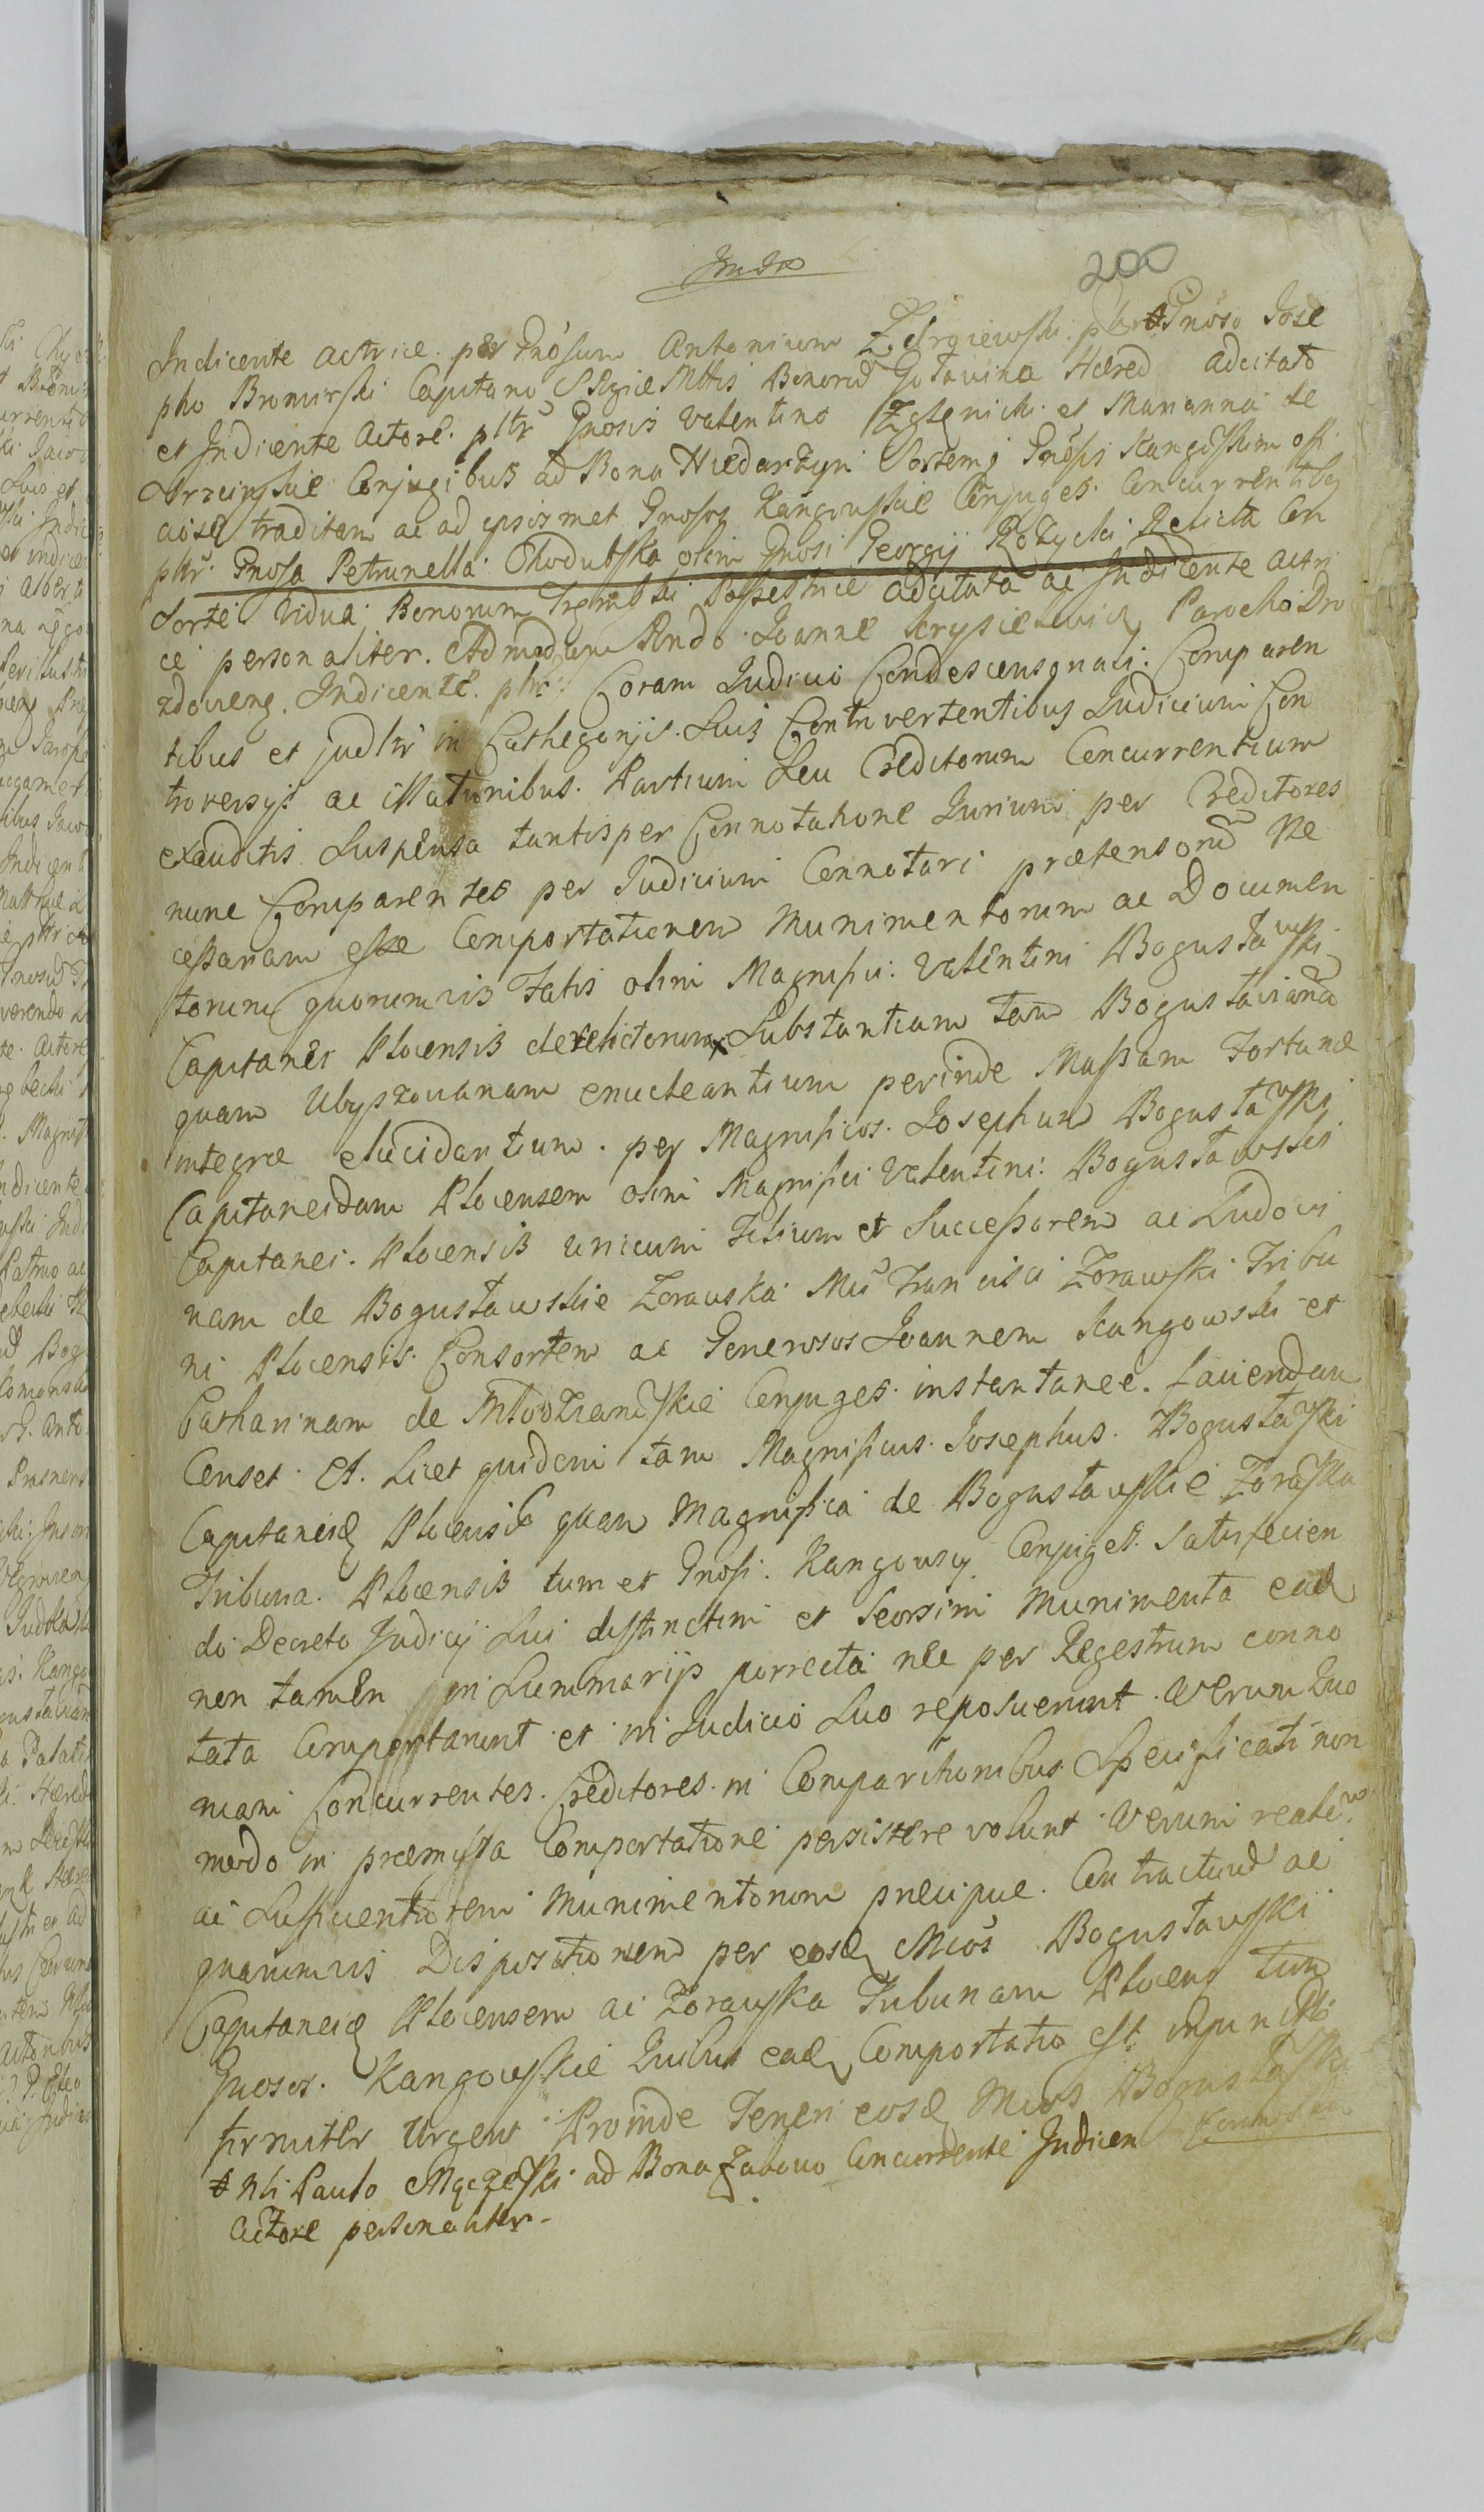 200
Indicente actrice. per Gnosum Antonium pltr Gnoso Jose
pho Bromirski Capitano S Rgiae Mttis Bonorum Gotavina Haered adcitato
et Indicente Actore. pltr Gnosis Valentino et Marianna de
Conjugibus ad Bona Niedarzyn Sortem Gnosis
traditam ac ad ipsosmet Gnosos Kangowskie Conjuges Concurrentibus
pltr. Gnosa Petrunella Chodubska olim Gnosi Georgij Rozycki Relicta Con
sorte Vidua Bonorum Trembki Possestrice adcitata ac Indicente actri
ce personaliter. Admodum Rndo Joanne Parocho Dro
Indicente. pltr. Coram Judicio Condescensonali Comparen
tibus et judltr in Cathegorijs Suis Controvertentibus Judicium Con
troversijs ac illationibus Partium seu Creditorum Concurrentium
exauditis Suspensa tantisper Connotatione Jurium per Creditores
nunc Comparentes per Judicium Connotari praetensorum Ne
cessariam esse Comportationem Munimentorum ac Documen
torum quorumvis Fatis olim Magnifici Valentini Bogustawski
Capitanei Plocensis derelictorum Substantiam tam Bogustavianam
quam Ubyszovianam enucleantium perinde Massam Fortunae
integrae elucidantium. per Magnificos. Josephum Bogustawski
Capitaneidam Plocensem olim Magnifici Valentini Bogustawski
Capitanei. Plocensis unicum Filium et Successorem ac Ludovi
nam de Bogustawskie Zorawska Mci Francisci Zorawski Tribu
ni Plocensis Consortem ac Generosos Joannem Kangowski et
Catharinam de Conjuges instantanee. faciendam
Censet. Et. Licet quidem tam Magnificus Josephus. Bogustawski
Capitaneid Plocensis quam Magnifica de Bogustawskie Zorawska
Tribuna. Plocensis tum et Gnosi Kangowscy Conjuges. Satisfacien
do Decreto Judicij Sui distinctim et Seorsim Munimenta ead
non tamen in Summarijs porrecta nec per Regestrum conno
tata Comportarunt et in Judicio Suo reposuerunt. Verum Quo
niam Concurrentes. Creditores in Comparitionibus Specificati non
modo in praemissa Comportatione persistere volunt Verum
ac Sufficientiorem Munimentorum praecipue Contractuum ac
quarumvis Dispositionem per eosd Mcos Bogustawski
Capitaneid Plocensem ac Zorawska Tribunam Plocens tum
Gnosos. Kangowskie Quibus ead Comportatio est injuncta
firmiter Urgent Proinde Teneri eosd Mcos Bogustawski
Nli Paulo ad Bona Zabowo Concurrente Indicen
Actore personaliter.